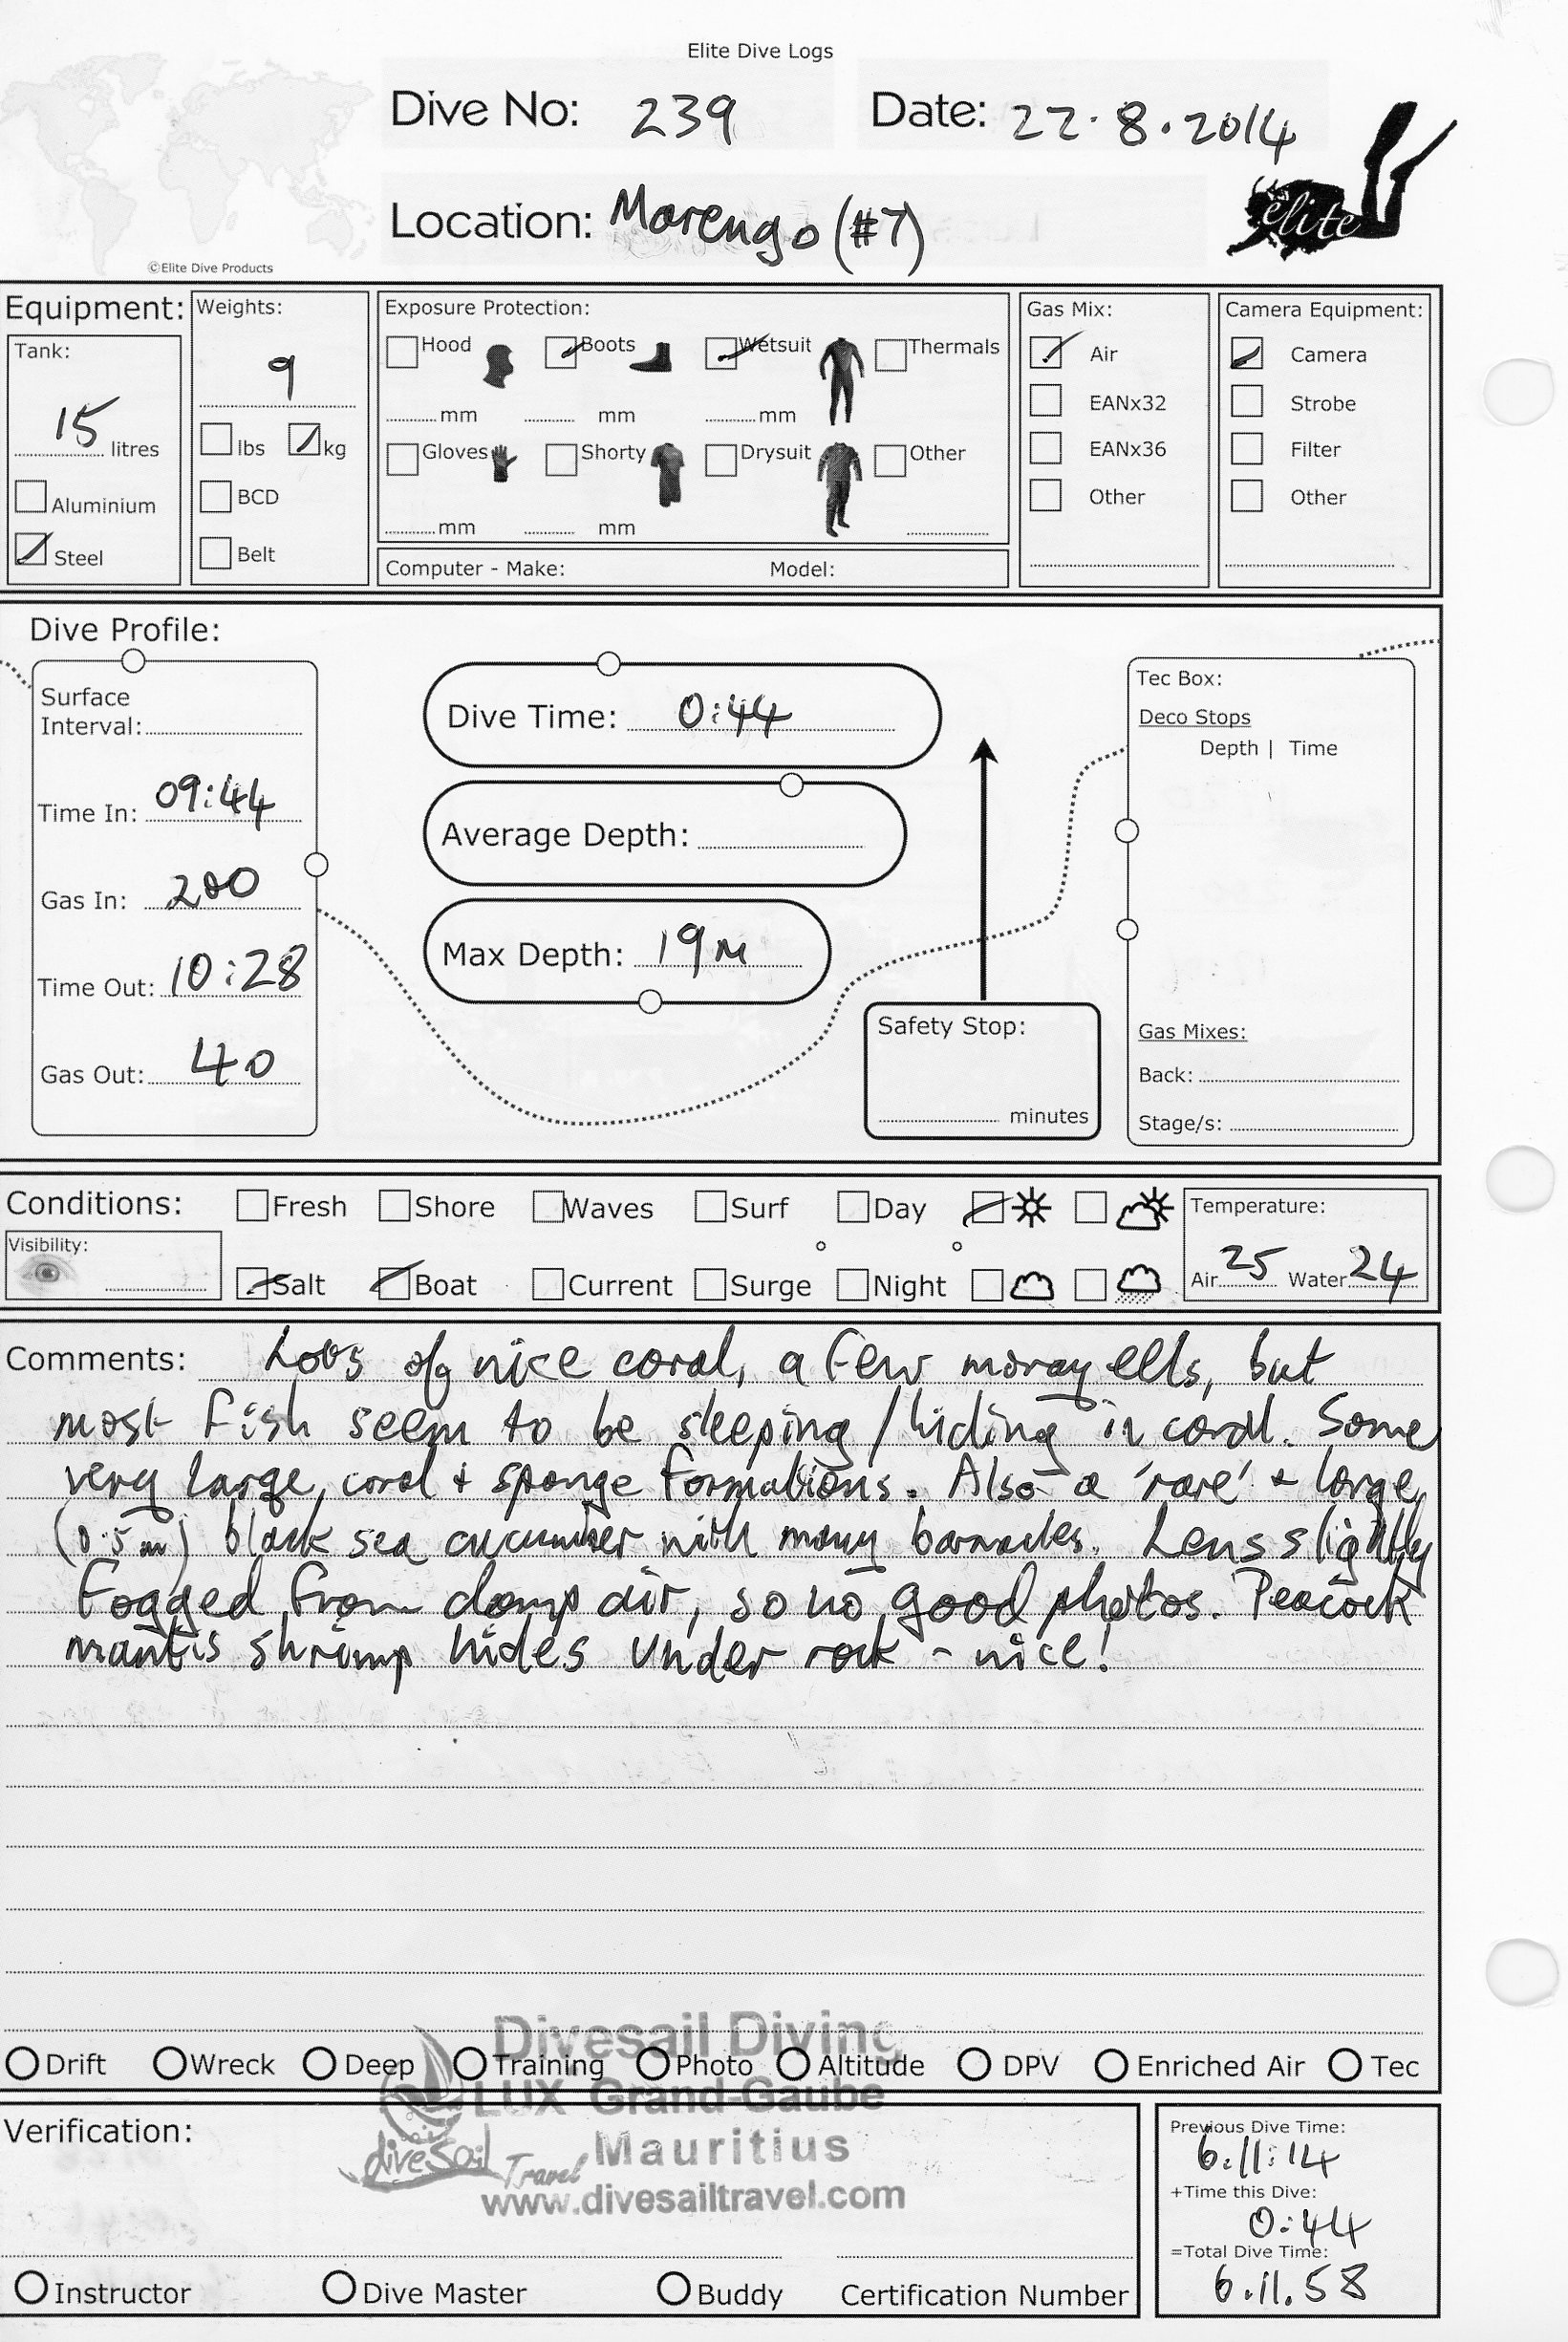 Elite Dive Logs
Dive No: 239 Date: 22.8.2014
Location: Marengo (#7)
©Elite Dive Products
elite
Equipment:
Tank:
15 litres
Aluminium
Steel
Weights:
9
lbs kg
BCD
Belt
Exposure Protection:
Hood Boots Wetsuit Thermals
mm mm mm
Gloves Shorty Drysuit Other
mm mm
Computer - Make: Model:
Gas Mix:
Air
EANx32
EANx36
Other
Camera Equipment:
Camera
Strobe
Filter
Other
Dive Profile:
Surface
Interval:
Time In: 09:44
Gas In: 200
Time Out: 10:28
Gas Out: 40
Dive Time: 0:44
Average Depth:
Max Depth: 19m
Safety Stop:
minutes
Tec Box:
Deco Stops
Depth | Time
Gas Mixes:
Back:
Stage/s:
Conditions: Fresh Shore Waves Surf Day
Visibility:
Salt Boat Current Surge Night
Temperature:
Air 25 Water 24
Comments: Lots of nice coral, a few moray eels, but
most fish seem to be sleeping / hiding in coral. Some
very large coral + sponge formations. Also a 'rare' + large
(0.5m) black sea cucumber with many barnacles. Lens slightly
fogged from damp air, so no good photos. Peacock
mantis shrimp hides under rock - nice!
Drift Wreck Deep Training Photo Altitude DPV Enriched Air Tec
Divesail Diving
LUX Grand-Gaube
Mauritius
divesail Travel
www.divesailtravel.com
Verification:
Instructor Dive Master Buddy Certification Number
Previous Dive Time:
6.11:14
+Time this Dive:
0:44
=Total Dive Time:
6.11.58